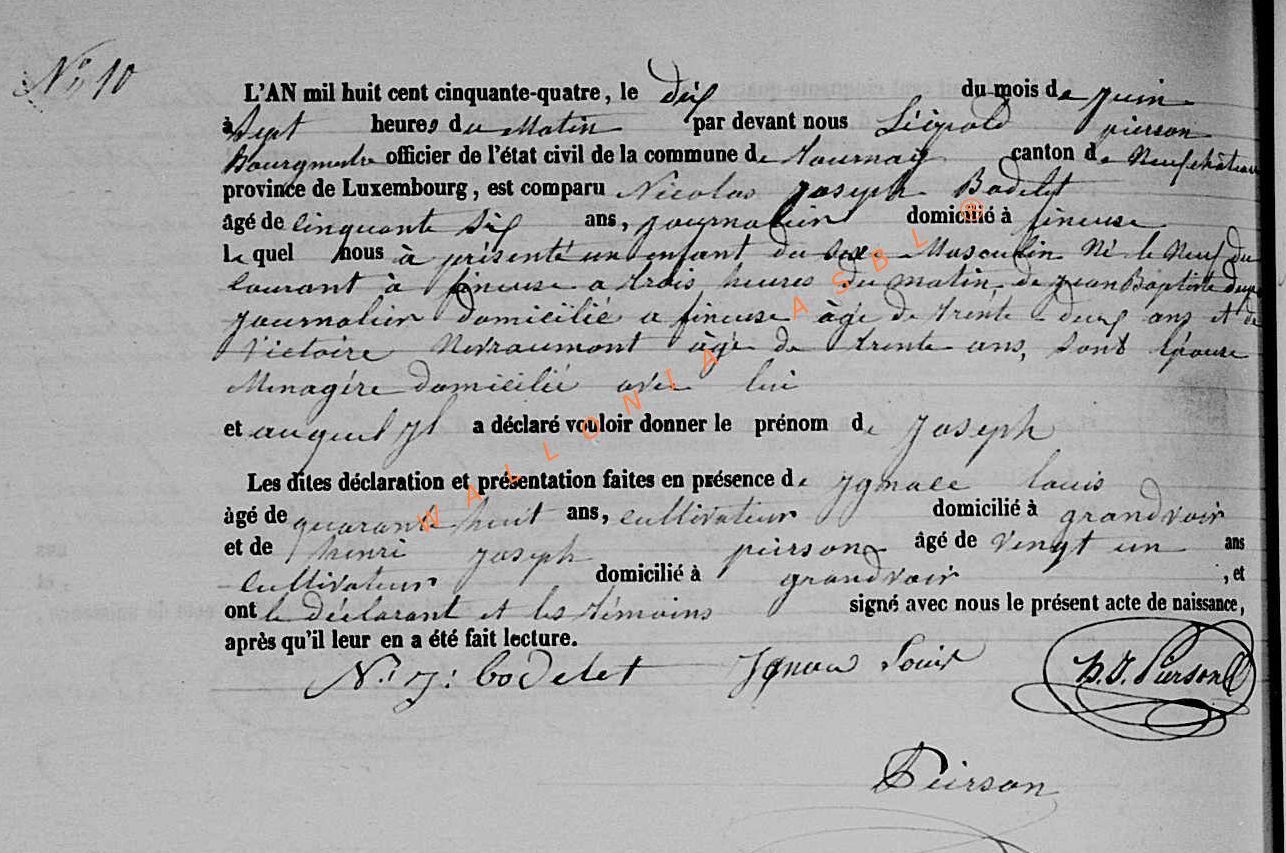 No 10
L'AN mil huit cent cinquante-quatre, le dix du mois de juin
à Sept heures du Matin par devant nous Léopold pierson
Bourgmestre officier de l'état civil de la commune de tournay canton de Neufchâteau
province de Luxembourg, est comparu Nicolas joseph Bodelet
âgé de cinquante six ans, journalier domicilié à fineuse
Le quel nous à présenté un enfant du sexe Masculin Né le Neuf du
Courant à fineuse a trois heures du matin, de jean Baptiste
journalier domicilié a fineuse âgé de trente deux ans et de
Victoire Nevraumont âgé de trente ans, sont épouse
Menagére domicilié avec lui
et auquel jl a déclaré vouloir donner le prénom de joseph
Les dites déclaration et présentation faites en présence de jgnace louis
âgé de quarante huit ans, cultivateur domicilié à grandvoir
et de henri joseph peirson âgé de vingt un ans
cultivateur domicilié à grandvoir , et
ont le déclarant et les témoins signé avec nous le présent acte de naissance,
après qu'il leur en a été fait lecture.
N: j: bodelet Jgnace Louis h. J. Pierson
Peirson
WALLONIA ASBL ®